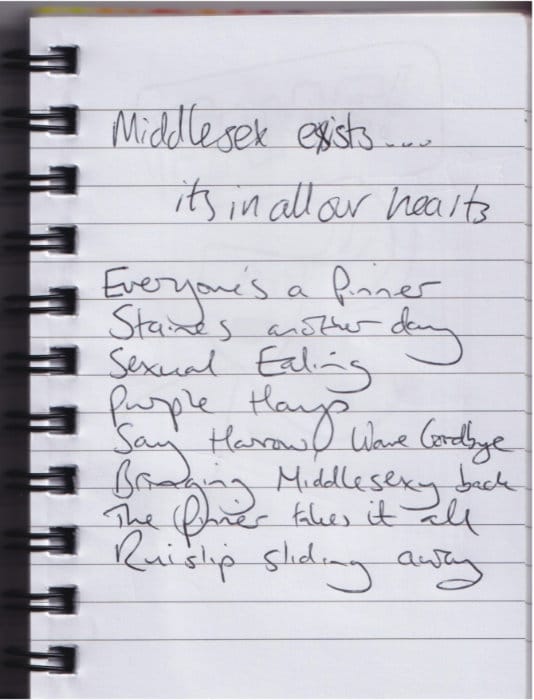 Middlesex exists....
its in all our hearts
Everyone's a Pinner
Staines another day
Sexual Ealing
Purple Hayes
Say Harrow, Wave Goodbye
Bringing Middlesexy back
The Pinner takes it all
Ruislip sliding away